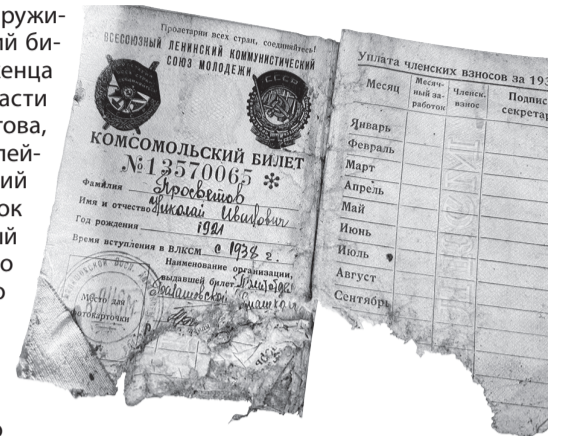 ружи-
ий би-
кенца
асти
това,
лей-
ий
ок
ый
о
о
о
Пролетарии всех стран, соединяйтесь!
ВСЕСОЮЗНЫЙ ЛЕНИНСКИЙ КОММУНИСТИЧЕСКИЙ
СОЮЗ МОЛОДЕЖИ
СССР
КОМСОМОЛЬСКИЙ БИЛЕТ
№13570065 *
Фамилия Просветов
Имя и отчество Николай Иванович
Год рождения 1921
Время вступления в ВЛКСМ с 1938 г.
Наименование организации,
выдавшей билет
Место для
фотокарточки
Уплата членских взносов за 193
Месяц
Месяч-
ный за-
работок
Членск.
взнос
Подпис
секретар
Январь
Февраль
Март
Апрель
Май
Июнь
Июль
Август
Сентябрь